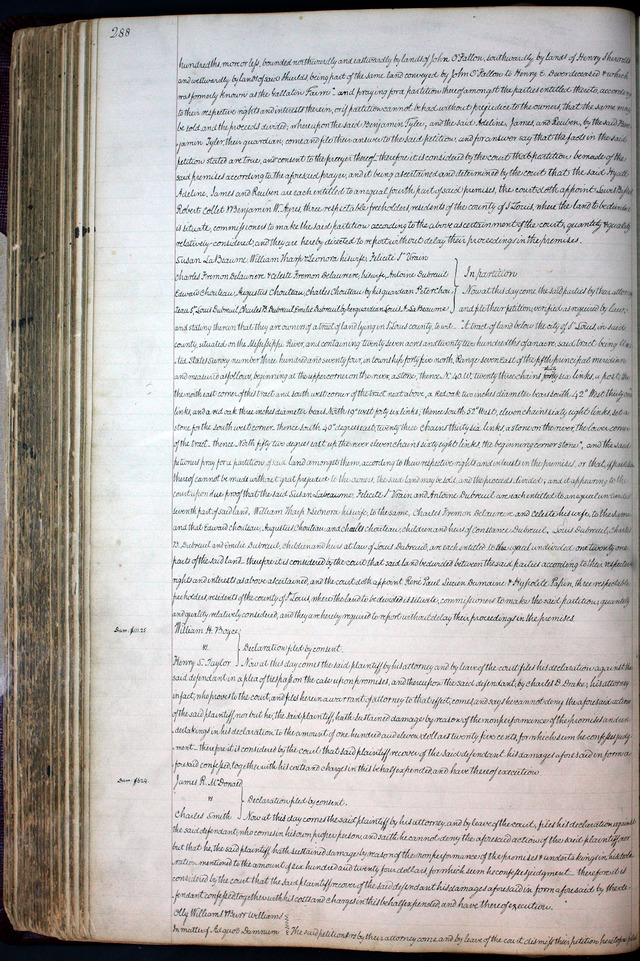 288
hundredths, more or less, bounded northwardly and eastwardly by lands of John O'Fallon, southwardly by lands of Henry
and westwardly by lands of said Shields being part of the same land conveyed by John O'Fallon to Henry deceased & which
was formerly known as the Gallatin Farm". and praying for a partition thereof amongst the parties entitled thereto, according
to their respective rights and interests therein, or if partition cannot be had without prejudice to the owners, that the same may
be sold and the proceeds divided; whereupon the said Benjamin Tyler, and the said Adeline, James and Reuben, by the said Ben-
jamin Tyler, their guardian, come and file their answer to the said petition, and for answer say that the facts in the said
petition stated are true, and consent to the prayer thereof. therefore it is considered by the court that partition be made of the
said premises according to the aforesaid prayer, and it being ascertained and determined by the court that the said
Adeline, James and Reuben are each entitled to an equal fourth part of said premises, the court doth appoint Lewis
Robert Collet & Benjamin W. Ayres, three respectable freeholders, residents of the county of St Louis, where the land to be divided
is situate, commissioners to make the said partition according to the above ascertainment of the court, quantity & quality
relatively considered, and they are hereby directed to report without delay their proceedings in the premises.
Susan LaBeaume, William Tharp & Leonora his wife, Felicite St Vrain
Charles Fremon Delauriere & Celeste Fremon Delauriere, his wife, Antoine Dubreuil
In partition
Edward Chouteau, Augustus Chouteau, Charles Chouteau, by his guardian Peter Chou-
Now at this day come the said parties by their attorn
teau Sr, Louis Dubreuil, Charles B. Dubreuil, Emilie Dubreuil by her guardian Louis A. LaBeaume
and file their petition, verified as required by law,
and stating therein that they are owners of a tract of land lying in St Louis county, to wit. "A tract of land below the city of St Louis in said
county, situated on the Mississippi River, and containing twenty seven acres and twenty two hundredths of an acre, said tract being
States survey number three hundred and seventy four, in township forty five north, Range seven east of the fifth principal meridian
and measured as follows, beginning at the upper corner on the river, a stone, thence N. 40. W. twenty three chains thirty six links, a post
the north east corner of this tract and south west corner of the tract next above, a red oak two inches diameter bears south 42° West thirty
links, and a red oak three inches diameter bears North 19° west forty six links; thence South 52° West, eleven chains sixty eight links, set a
stone for the south west corner. thence south 40 degrees east, twenty three chains thirty six links, a stone on the river, the lower corner
of the tract. thence North fifty two degrees east up the river eleven chains sixty eight links, the beginning corner stone", and the said
petitioners pray for a partition of said land amongst them, according to their respective rights and interest in the premises, or that, if partition
thereof cannot be made without great prejudice to the owners, the said land may be sold, and the proceeds divided; and it appearing to the
court upon due proof that the said Susan Labeaume, Felicite St Vrain and Antoine Dubreuil are each entitled to an equal undivided
seventh part of said land, William Tharp & Leonora his wife, to the same, Charles Fremon Delauriere and Celeste his wife, to the same
and that Edward Chouteau, Augustus Chouteau and Charles Chouteau, children and heirs of Constance Dubreuil, Louis Dubreuil, Charles
B. Dubreuil and Emilie Dubreuil, children and heirs at law of Louis Dubreuil, are each entitled to the equal undivided one twenty one
parts of the said land. therefore it is considered by the court that said land be divided between the said parties according to their respective
rights and interests as above ascertained, and the court doth appoint René Paul, Lucien Dumaine & Hypolite Papin, three respectable
freeholders, residents of the county of St Louis, where the land to be divided is situate, commissioners to make the said partition, quantity
and quality relatively considered, and they are hereby required to report without delay their proceedings in the premises.
Dam. $111.25
William H. Boyce
vs.
Declaration filed by consent.
Henry S. Taylor
Now at this day comes the said plaintiff by his attorney and by leave of the court files his declaration against the
said defendant in a plea of trespass on the case upon promises, and thereupon the said defendant, by Charles D. Drake, his attorney
in fact, who proves to the court, and files herein a warrant of attorney to that effect, comes and says he cannot deny the aforesaid action
of the said plaintiff, nor but he, the said plaintiff, hath sustained damage by reason of the nonperformance of the promises and un-
dertakings in his declaration to the amount of one hundred and eleven dollars twenty five cents, for which sum he confesses judg-
ment. therefore it is considered by the court that said plaintiff recover of the said defendant his damages aforesaid in form a-
foresaid confessed, together with his costs and charges in this behalf expended, and have thereof execution.
Dam. $624.
James R. McDonald
vs
Declaration filed by consent.
Charles Smith
Now at this day comes the said plaintiff by his attorney, and by leave of the court, files his declaration against
the said defendant, who comes in his own proper person, and saith he cannot deny the aforesaid action of the said plaintiff, nor
but that he, the said plaintiff, hath sustained damage by reason of the nonperformance of the promises & undertakings in his decla-
ration mentioned to the amount of six hundred and twenty four dollars for which sum he confesses judgment. therefore it is
considered by the court that the said plaintiff recover of the said defendant his damages aforesaid in form aforesaid by the de-
fendant confessed, together with his costs and charges in this behalf expended, and have thereof execution.
Olly Williams & Fleur Williams
In matter of Ad quod Damnum
The said petitioners by their attorney come, and by leave of the court dismiss their petition heretofore